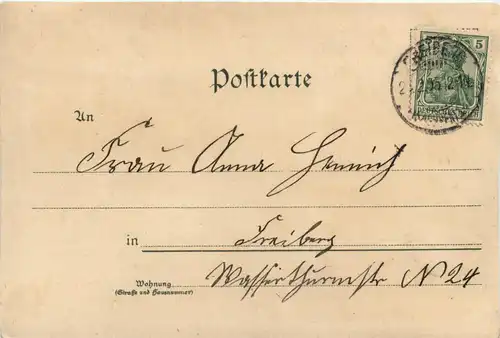 Postkarte
5
An
Frau Anna Hennich
in Freiberg
Wohnung
(Straße und Hausnummer)
Wasserthurmstr N 24